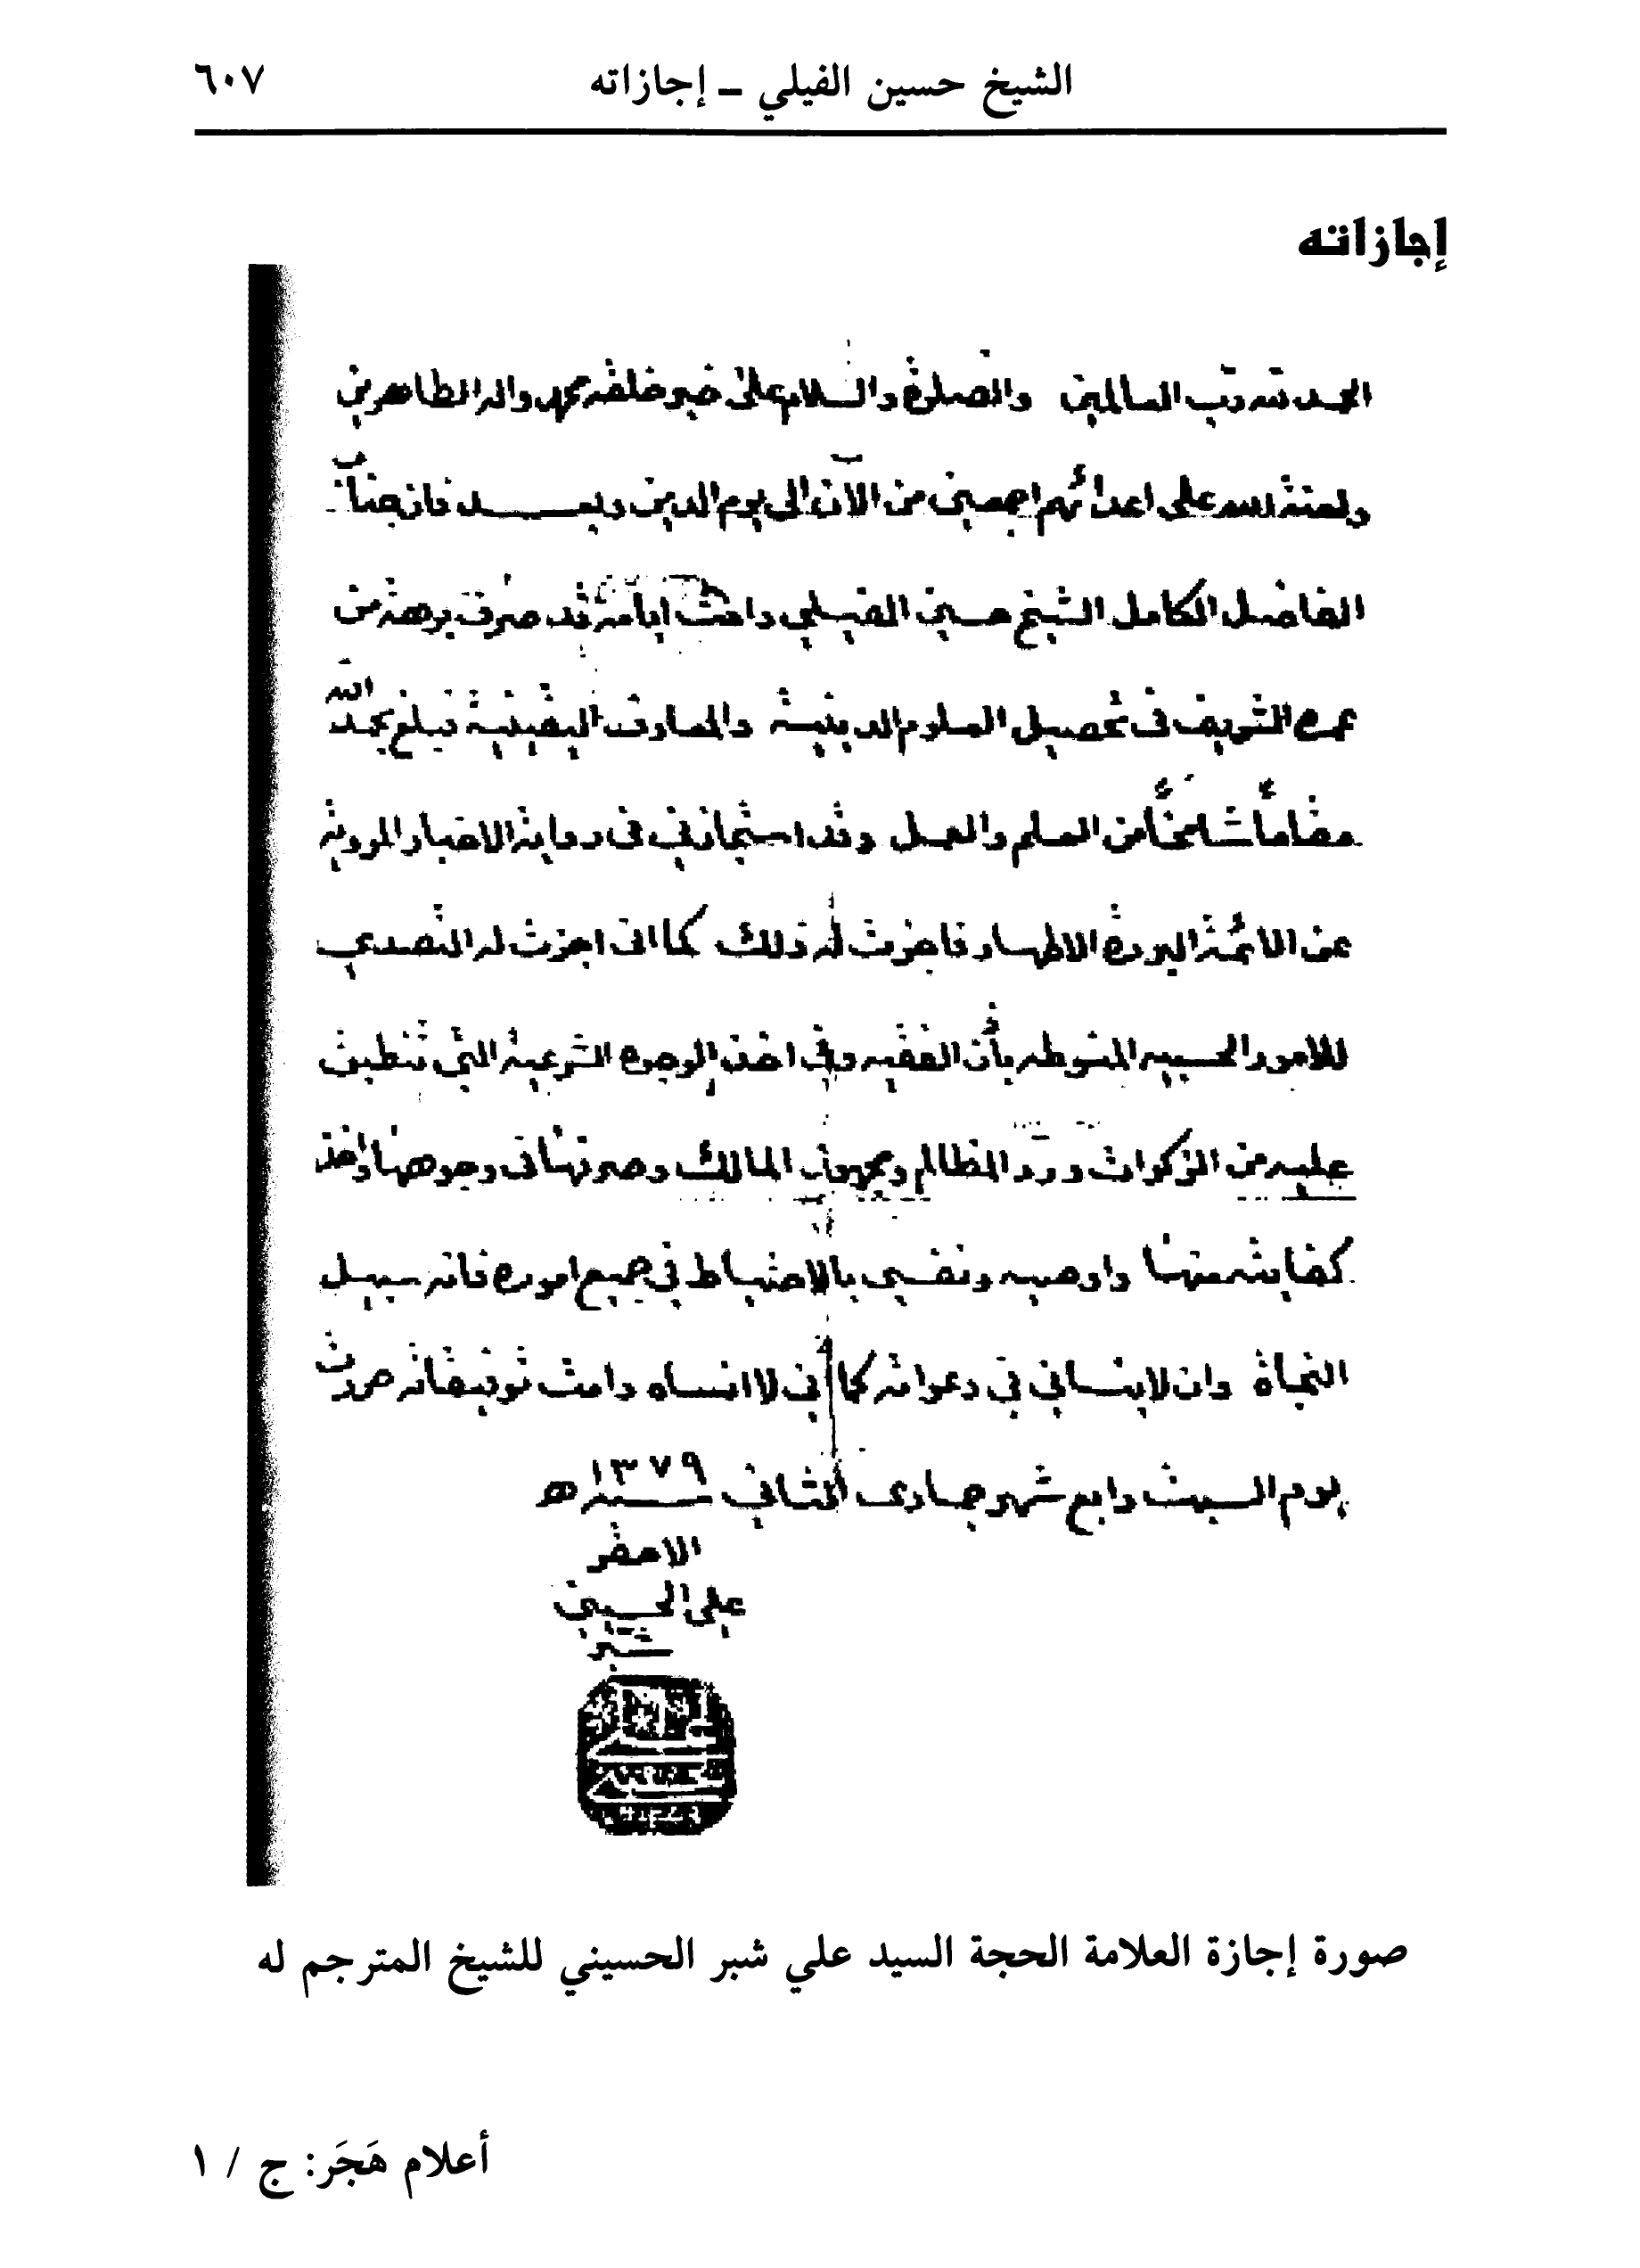 الشيخ حسين الفيلي ـ إجازاته
٦٠٧
إجازاته
الحمد لله رب العالمين والصلوة والسلام على خير خلقه محمد واله الطاهرين
ولعنة الله على اعدائهم اجمعين من الآن الى يوم الدين وبعد فان جناب
الفاضل الكامل الشيخ حسين الفيلي دامت ايامه قد صرف برهة من
عمره الشريف في تحصيل العلوم الدينية والمعارف اليقينية فبلغ بحمد الله
مقاماً شامخاً من العلم والعمل وقد استجازني في رواية الاخبار المروية
عن الائمة البررة الاطهار فاجزت له ذلك كما اني اجزت له التصدي
للامور الحسبيه المنوطه بأذن الفقيه وفي اخذ الوجوه الشرعية التي تنطبق
عليه من الزكوات ورد المظالم ومجهول المالك وصرفها في وجوهها واخذ
كفايته منها واوصيه ونفسي بالاحتياط في جميع اموره فانه سبيل
النجاة وان لا ينساني في دعواته كما اني لا انساه دامت توفيقاته حررت
يوم السبت رابع شهر جمادى الثاني سنه ١٣٧٩ ه
الاحقر
علي الحسيني
شبر
صورة إجازة العلامة الحجة السيد علي شبر الحسيني للشيخ المترجم له
أعلام هَجَر: ج / ١